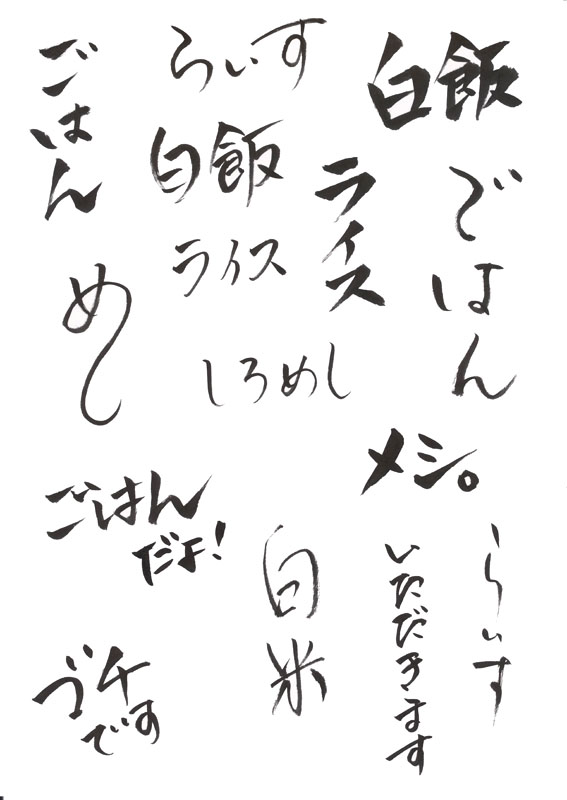 ごはん
らぃす
白飯
白飯
ライス
ごはん
ライス
めし
しろめし
メシ。
ごはん
だょ!
白米
いただきます
らぃす
ゴチ
です